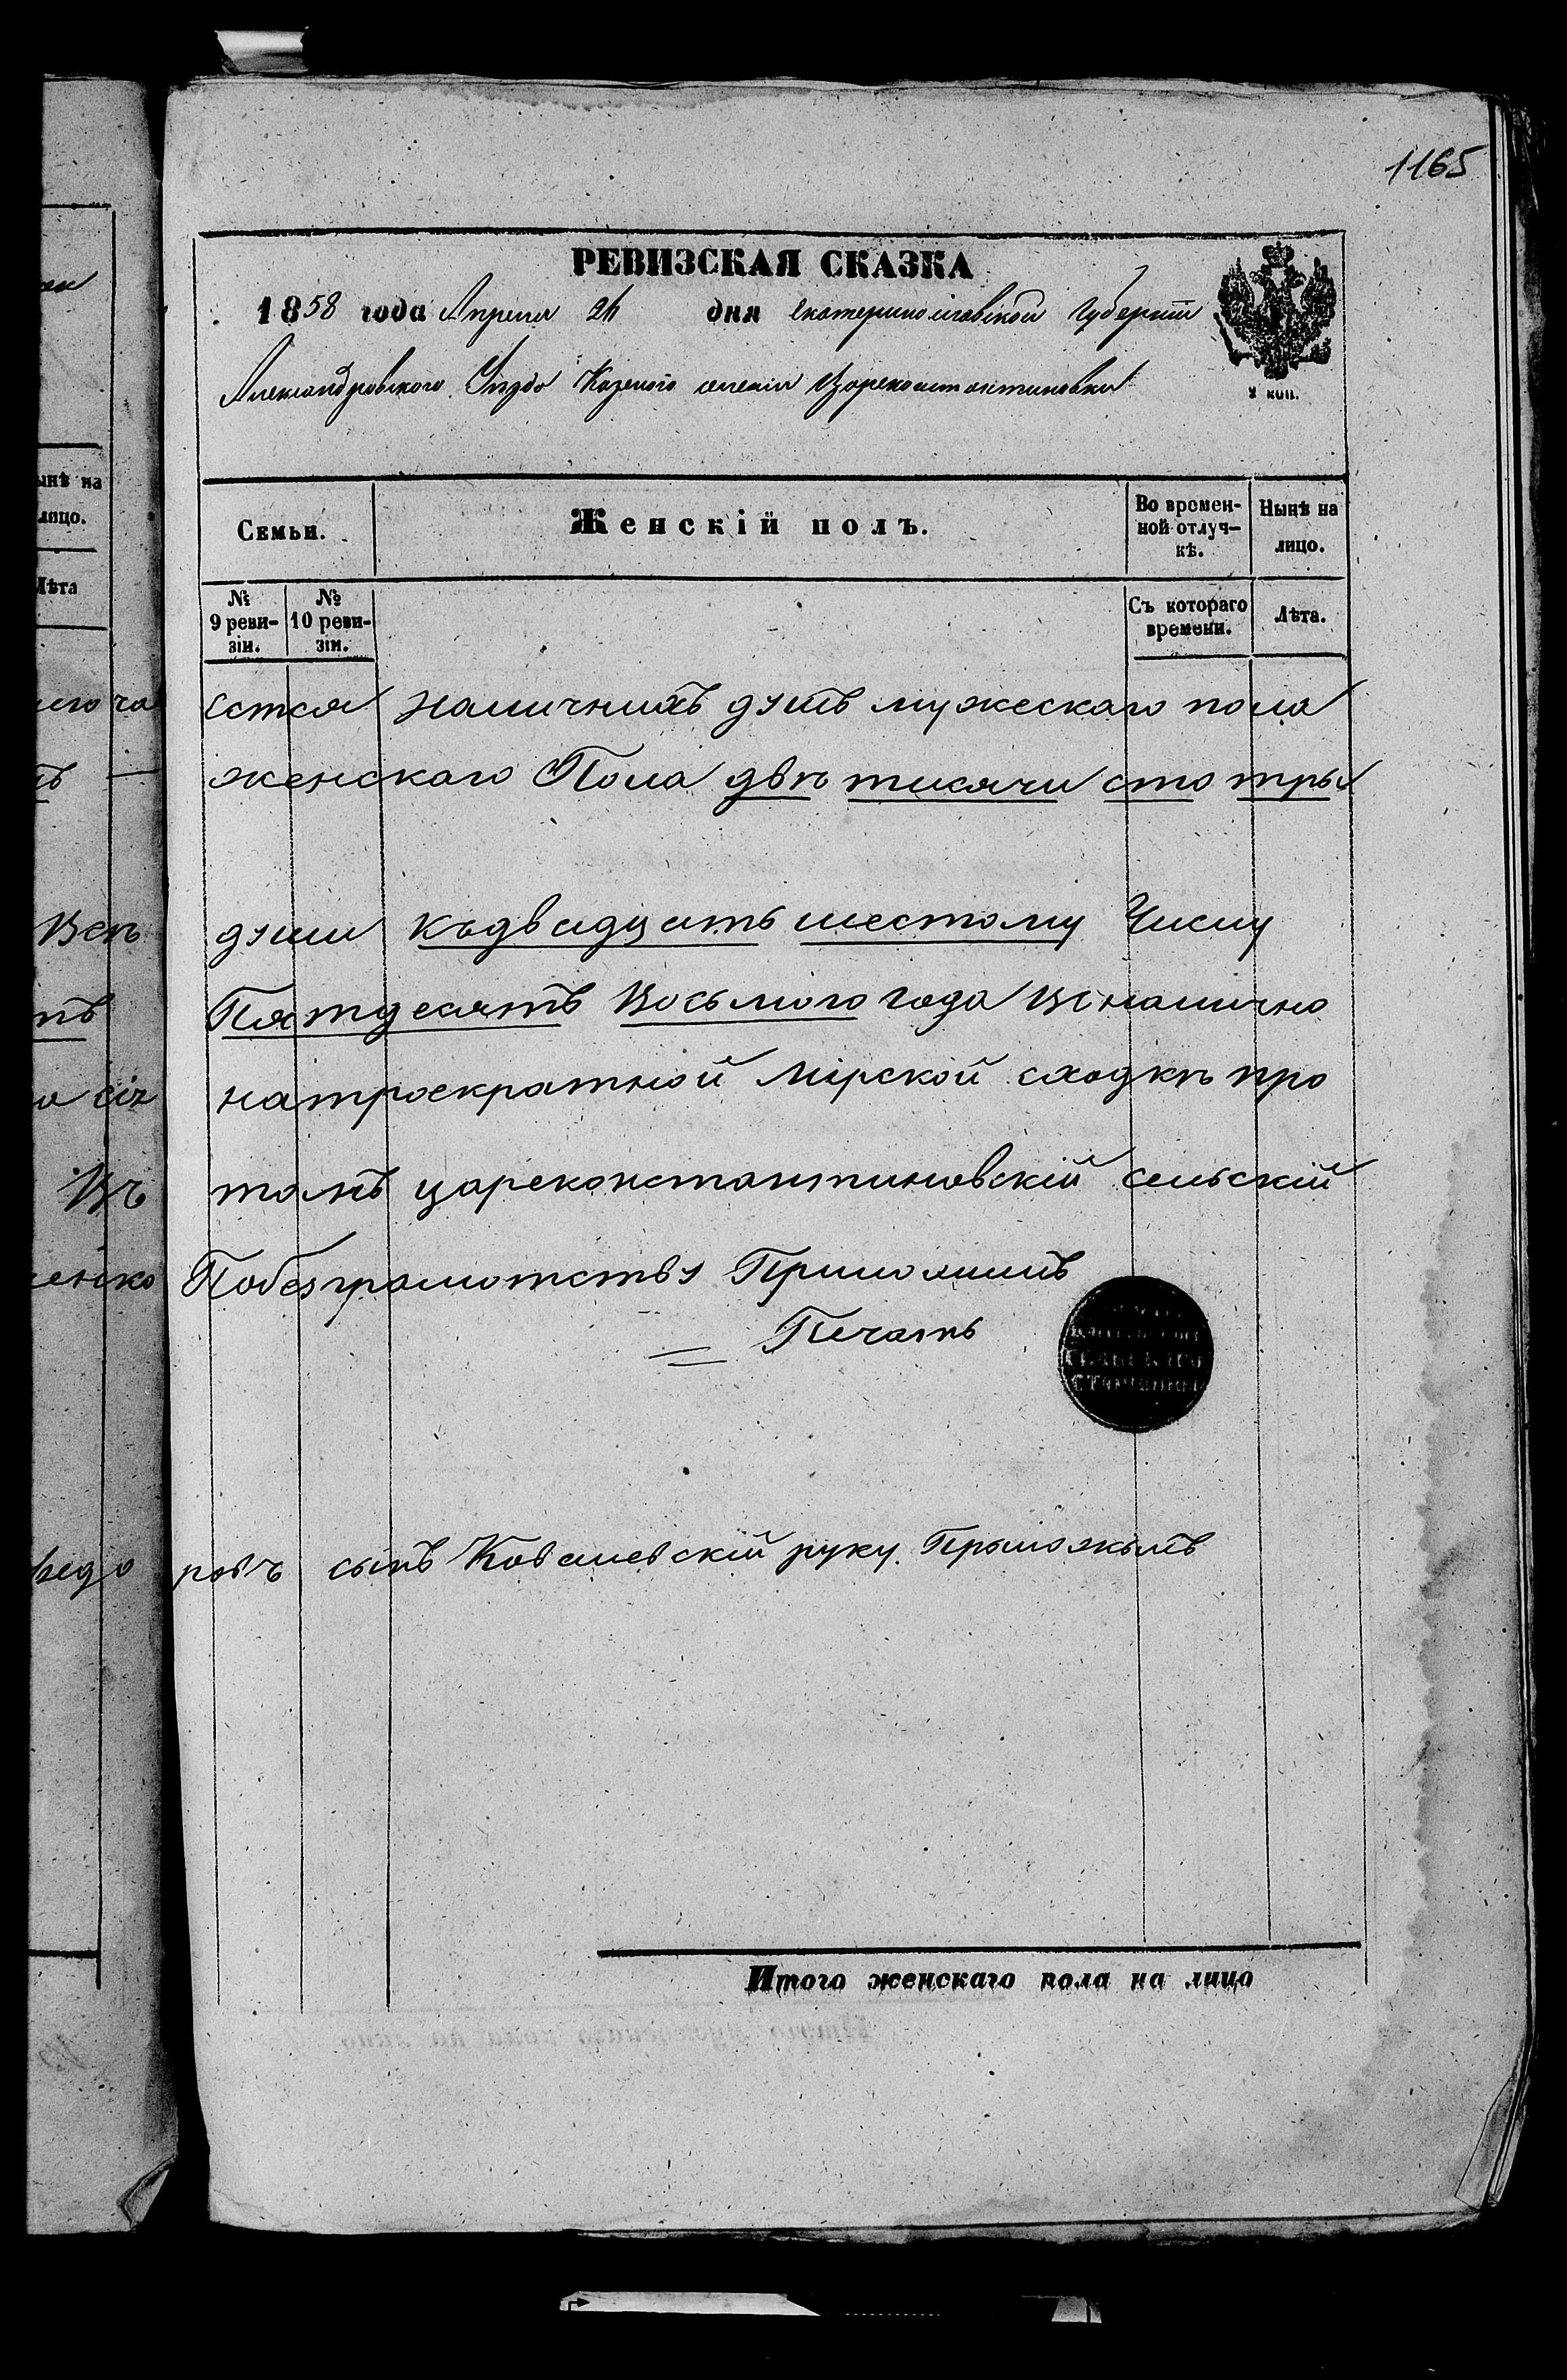 1165
РЕВИЗСКАЯ СКАЗКА
1858 года Апреля 26 дня Екатеринославской Губернии
Александровского Уезда Казеного селения Цареконстантиновки
2 коп.
Семьи.
Женскій полъ.
Во времен-
ной отлуч-
кѣ.
Нынѣ на
лицо.
№
9 реви-
зіи.
№
10 реви-
зіи.
Съ котораго
времени.
Лѣта.
ется наличныхъ душъ мужескаго пола
женскаго Пола двѣ тисячи сто тры
души къдвадцать шестому Числу
Пятдесятъ Восьмого года
натроекратной Мірской сходкѣ про
томъ цареконстантиновскій сельскій
Побезграмотству Приложилъ
Печать
ровъ сынъ Ковалевскій руку Прыложылъ
Итого женскаго пола на лицо
ынѣ на
лицо.
Лѣта
Въ